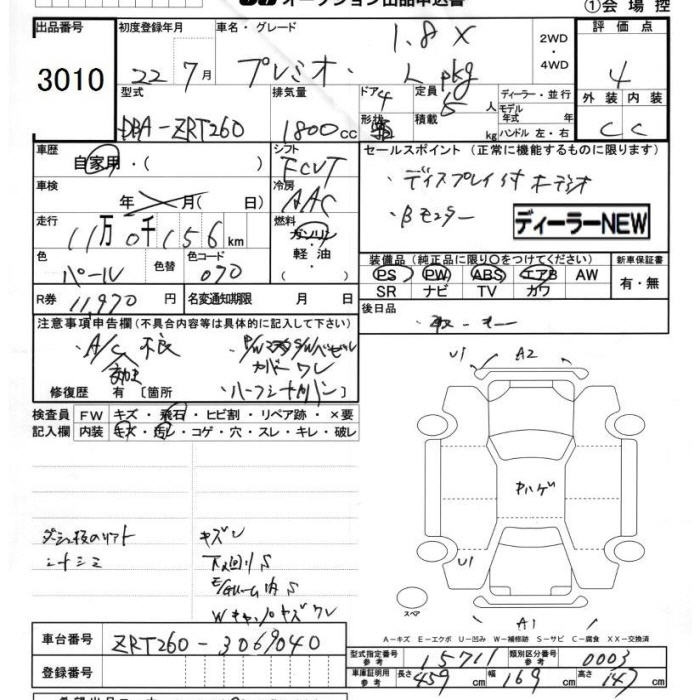 オークション出品申込書
①会場控
出品番号
3010
初度登録年月
22 7月
車名・グレード
プレミオ・
1.8 X
L pkg
2WD
・
4WD
評価点
4
外装 内装
C C
型式
DBA-ZRT260
排気量
1800cc
ドア 4
形状
定員 5人
積載 kg
ディーラー・並行
モデル
年式 年
ハンドル 左・右
車歴
自家用・( )
シフト
FCVT
冷房
AAC
車検
年 月( 日)
走行
11万0千156km
燃料
ガソリン
軽油
・
色
パール
色替
色コード
070
R券 11,970円
名変通知期限 月 日
セールスポイント (正常に機能するものに限ります)
・ディスプレイ付オーデオ
・Bモニター
ディーラーNEW
装備品 (純正品に限り○をつけてください)
PS PW ABS エアB AW
SR ナビ TV カワ
新車保証書
有・無
後日品
注意事項申告欄 (不具合内容等は具体的に記入して下さい)
・A/C
カバーワレ
修復歴 有 [箇所
検査員 FW キズ・飛石・ヒビ割・リペア跡・×要
記入欄 内装 キズ・汚レ・コゲ・穴・スレ・キレ・破レ
シートシミ
キズ
下廻りS
U1 A2
内ハゲ
U1
A1
スペア
A-キズ E-エクボ U-凹み W-補修跡 S-サビ C-腐食 XX-交換済
車台番号 ZRT260-3069040
登録番号
型式指定番号
参考
15711
類別区分番号
参考
0003
車庫証明用
参考
長さ 459cm 幅 169cm 高さ 147cm